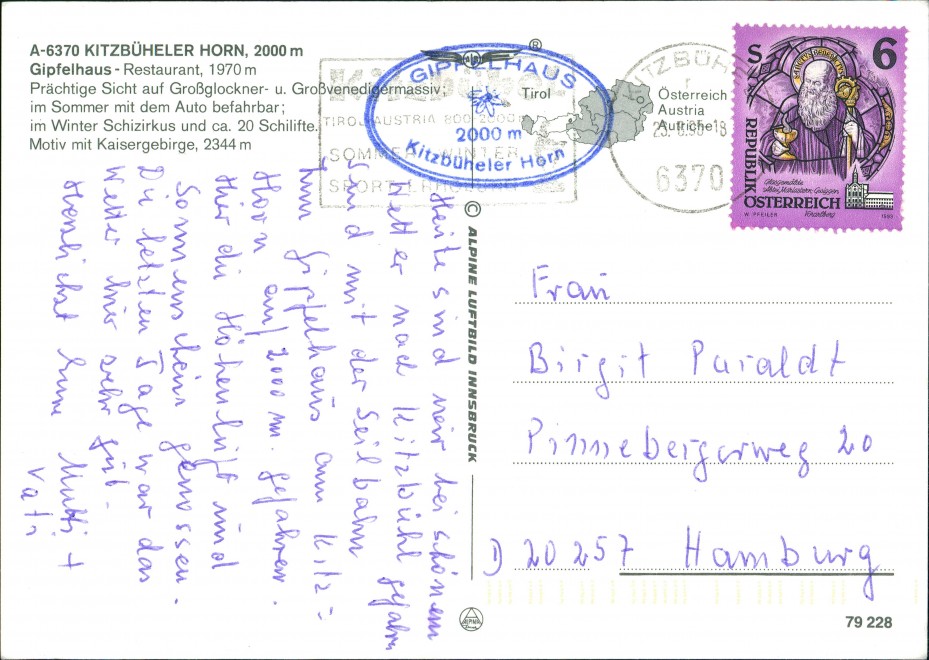 A-6370 KITZBÜHELER HORN, 2000 m
Gipfelhaus - Restaurant, 1970 m
Prächtige Sicht auf Großglockner- u. Großvenedigermassiv;
im Sommer mit dem Auto befahrbar;
im Winter Schizirkus und ca. 20 Schilifte.
Motiv mit Kaisergebirge, 2344 m
®
GIPFELHAUS
2000 m
Kitzbüheler Horn
Tirol
Österreich
Austria
Autriche
KITZBÜHEL
TIROL AUSTRIA 800-2000
SOMMER WINTER
SPORT
KITZBÜH
-18
6370
S 6
REPUBLIK
ÖSTERREICH
W. PFEILER
Vorarlberg
1993
Heute sind wir bei schönem
Wetter nach Kitzbühl gefahren
und mit der Seilbahn
zum Gipfelhaus am Kitz=
Horn auf 2000 m. gefahren.
Hier die Höhenluft und
Sonnenschein genossen.
Die letzten Tage war das
Wetter hier sehr gut.
Herzlichst Eure Mutti +
Vati
© ALPINE LUFTBILD INNSBRUCK
Frau
Birgit Paraldt
Pinnebergerweg 20
D 20257 Hamburg
ALPINE
79 228